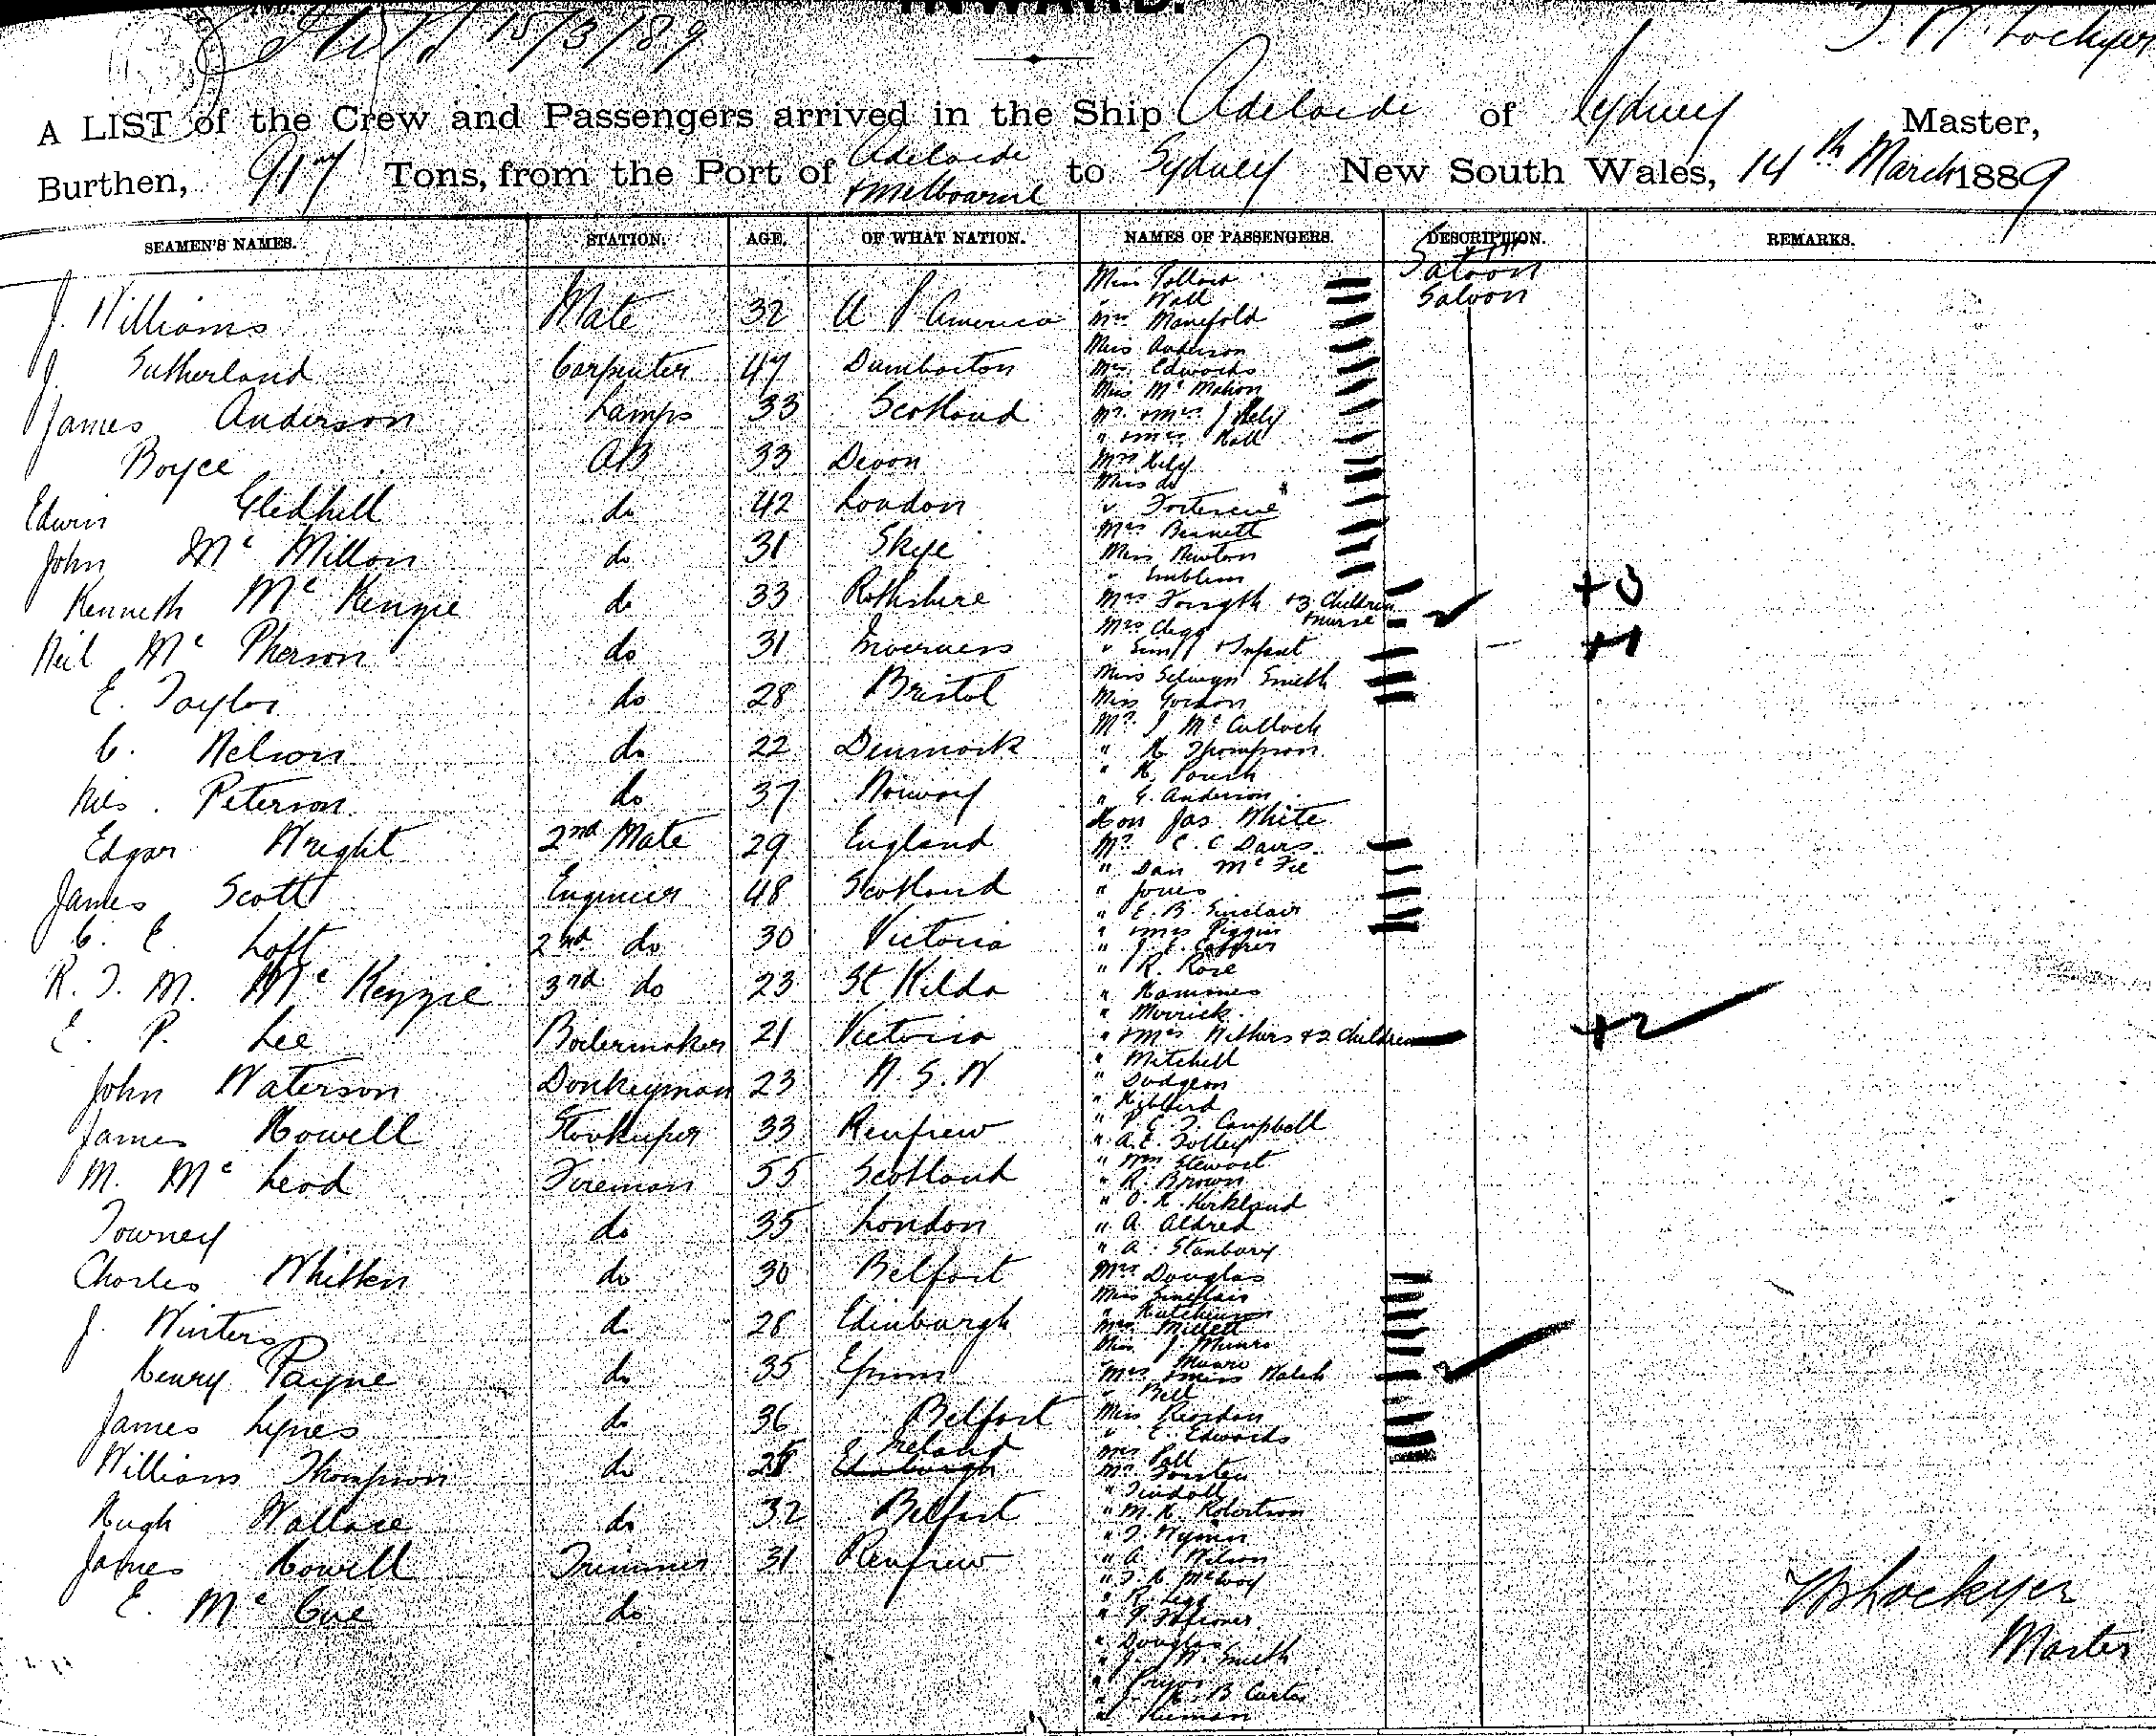 INWARD.
15/3/89
Lockyer
A LIST of the Crew and Passengers arrived in the Ship Adelaide of Sydney Master,
Burthen, 917 Tons, from the Port of Adelaide & Melbourne to Sydney New South Wales, 14th March 1889
SEAMEN'S NAMES. STATION. AGE. OF WHAT NATION. NAMES OF PASSENGERS. DESCRIPTION. REMARKS.
J. Williams Mate 32 U S America
J. Sutherland Carpenter 47 Dumbarton
James Anderson Lamps 33 Scotland
Boyce AB 33 Devon
Edwin Gledhill do 42 London
John Mc Millan do 31 Skye
Kenneth Mc Kenzie do 33 Rothshire
Neil Mc Pherson do 31 Inverness
E. Taylor do 28 Bristol
C. Nelson do 22 Denmark
Nils Peterson do 37 Norway
Edgar Wright 2nd Mate 29 England
James Scott Engineer 48 Scotland
C. E. Loft 2nd do 30 Victoria
R. J. M. Mc Kenzie 3rd do 23 St Kilda
E. P. Lee Boilermaker 21 Victoria
John Waterson Donkeyman 23 N. S. W
James Howell Storekeeper 33 Renfrew
M. Mc Leod Fireman 55 Scotland
Towney do 35 London
Charles Whitten do 30 Belfast
J. Winters do 28 Edinburgh
Henry Payne do 35 Epsom
James Lynes do 36 Belfast
William Thompson do Ireland Edinburgh
Hugh Wallace do 32 Belfast
James Howell Trimmer 31 Renfrew
E. Mc Cue do
Miss Pollard Saloon
" Wall Saloon
Mrs Manifold
Miss Anderson
Mrs Edwards
Miss Mc Mahon
Mr & Mrs J Kely
" & Mrs Hall
Mrs Kely
Miss do
" Fortescue
Mrs Bennett
Miss Newton
" Emblem
Mrs Forsyth & 3 Children & nurse 2 +3
Mrs Clegg
" & Infant +1
Miss Selwyn Smith
Miss Gordon
Mr J McCulloch
" H Thompson
" G. Anderson
Hon Jas White
Mr C. C Davis
" Dan McFie
" Jones
" E. B. Sinclair
" & Mrs Piggin
" R. Rose
" Hammer
" Merrick
" & Mrs Withers & 2 Children +2
" Mitchell
" Dodgeon
" Hibberd
" P C J. Campbell
" A. E. Tolley
" Wm Stewart
" R. Brown
" O K. Kirkland
" A Aldred
" A. Stanbury
Mrs Douglas
Miss Sinclair
" Hutcheson
Mrs Millett
Miss J. Munro
" Munro
Mrs & Miss Walsh 2
" Bell
Miss Riordan
" E. Edwards
Mrs Pall
Mr Forster
" Tindall
" M. K. Robertson
" T. Wymer
" A Wilson
" R. Legg
" Douglas
" J. W. Smith
" Pryor
" J. H. B Curtis
Lockyer
Master